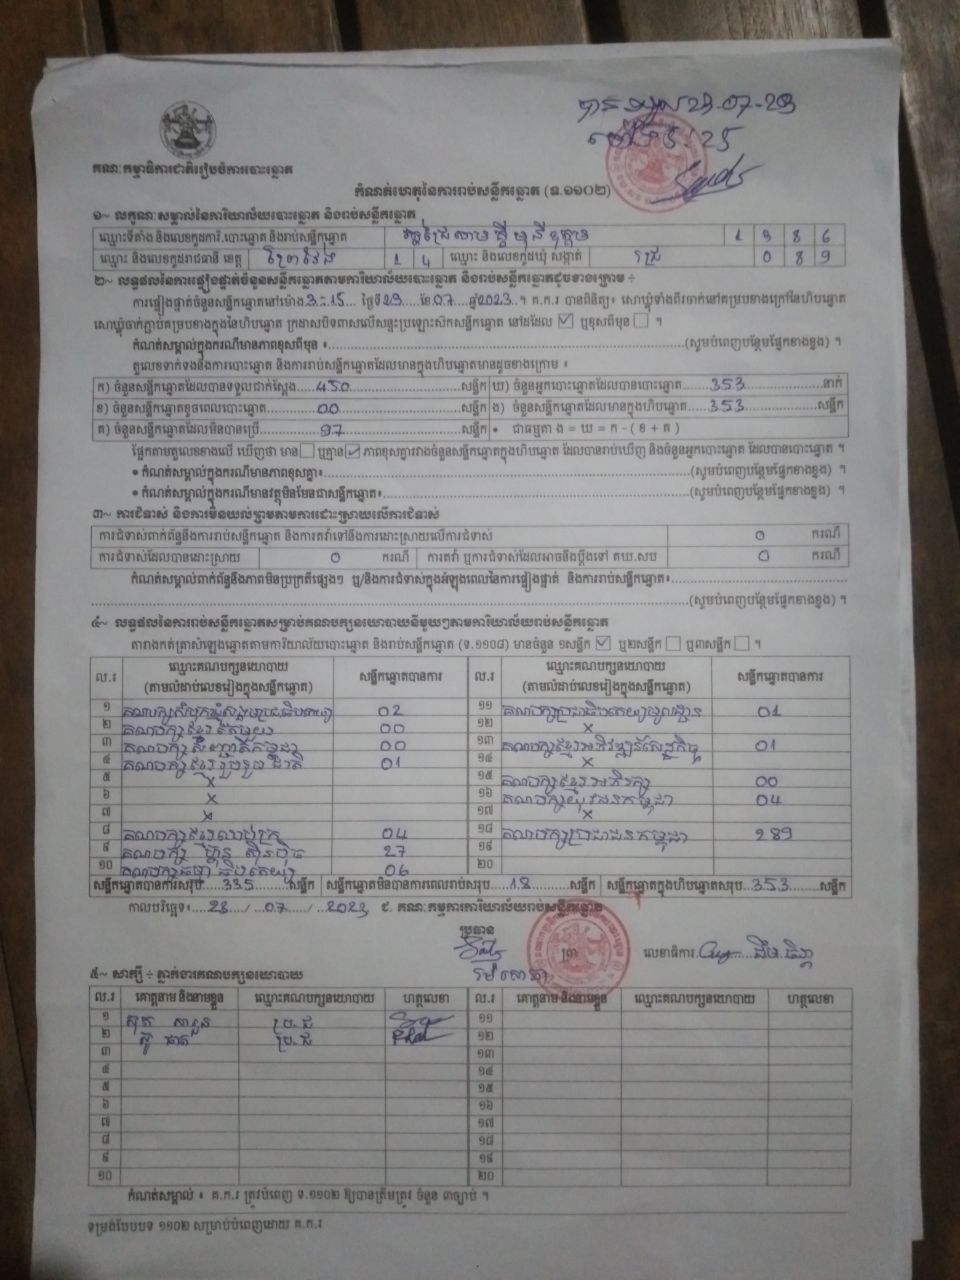 បានទទួល 23-07-23
ម៉ោង: 25
គណៈកម្មាធិការជាតិរៀបចំការបោះឆ្នោត
កំណត់ហេតុនៃការរាប់សន្លឹកឆ្នោត (ទ.១១០២)
១~ លក្ខណៈសម្គាល់នៃការិយាល័យបោះឆ្នោត និងរាប់សន្លឹកឆ្នោត
ឈ្មោះទីតាំង និងលេខកូដការិ.បោះឆ្នោត និងរាប់សន្លឹកឆ្នោត 1 9 8 6
ឈ្មោះ និងលេខកូដរាជធានី ខេត្ត ព្រៃវែង 1 4 ឈ្មោះ និងលេខកូដឃុំ សង្កាត់ ជ្រៃ 0 8 9
២~ លទ្ធផលនៃការផ្ទៀងផ្ទាត់ចំនួនសន្លឹកឆ្នោតតាមការិយាល័យបោះឆ្នោត និងរាប់សន្លឹកឆ្នោតដូចខាងក្រោម ÷
ការផ្ទៀងផ្ទាត់ចំនួនសន្លឹកឆ្នោតនៅម៉ោង 3:15 ថ្ងៃទី 23 ខែ 07 ឆ្នាំ 2023 ។ គ.ក.រ បានពិនិត្យ៖ សោឃ្លុំទាំងពីរចាក់នៅគម្របខាងក្រៅនៃហិបឆ្នោត
សោឃ្លុំចាក់ភ្ជាប់គម្របខាងក្នុងនៃហិបឆ្នោត ក្រដាសបិទពាសលើសន្ទះប្រឡោះស៊កសន្លឹកឆ្នោត នៅដដែល ☑ ឬខុសពីមុន ☐ ។
កំណត់សម្គាល់ក្នុងករណីមានភាពខុសពីមុន ៖ (សូមបំពេញបន្ថែមផ្នែកខាងខ្នង) ។
តួលេខទាក់ទងនឹងការបោះឆ្នោត និងការរាប់សន្លឹកឆ្នោតដែលមានក្នុងហិបឆ្នោតមានដូចខាងក្រោម ៖
ក) ចំនួនសន្លឹកឆ្នោតដែលបានទទួលជាក់ស្តែង 450 សន្លឹក ឃ) ចំនួនអ្នកបោះឆ្នោតដែលបានបោះឆ្នោត 353 នាក់
ខ) ចំនួនសន្លឹកឆ្នោតខូចពេលបោះឆ្នោត 00 សន្លឹក ង) ចំនួនសន្លឹកឆ្នោតដែលមានក្នុងហិបឆ្នោត 353 សន្លឹក
គ) ចំនួនសន្លឹកឆ្នោតដែលមិនបានប្រើ 97 សន្លឹក • ជាធម្មតា ង = ឃ = ក - ( ខ + គ )
ផ្អែកតាមតួលេខខាងលើ ឃើញថា មាន ☐ ឬគ្មាន ☑ ភាពខុសគ្នារវាងចំនួនសន្លឹកឆ្នោតក្នុងហិបឆ្នោត ដែលបានរាប់ឃើញ និងចំនួនអ្នកបោះឆ្នោត ដែលបានបោះឆ្នោត ។
• កំណត់សម្គាល់ក្នុងករណីមានភាពខុសគ្នា៖ (សូមបំពេញបន្ថែមផ្នែកខាងខ្នង) ។
• កំណត់សម្គាល់ក្នុងករណីមានវត្ថុមិនមែនជាសន្លឹកឆ្នោត៖ (សូមបំពេញបន្ថែមផ្នែកខាងខ្នង) ។
៣~ ការជំទាស់ និងការមិនយល់ព្រមតាមការដោះស្រាយលើការជំទាស់
ការជំទាស់ពាក់ព័ន្ធនឹងការរាប់សន្លឹកឆ្នោត និងការតវ៉ាទៅនឹងការដោះស្រាយលើការជំទាស់ 0 ករណី
ការជំទាស់ដែលបានដោះស្រាយ 0 ករណី ការតវ៉ា ឬការជំទាស់ដែលអាចនឹងប្តឹងទៅ គឃ.សប 0 ករណី
កំណត់សម្គាល់ពាក់ព័ន្ធនឹងភាពមិនប្រក្រតីផ្សេងៗ ឬ/និងការជំទាស់ក្នុងអំឡុងពេលនៃការផ្ទៀងផ្ទាត់ និងការរាប់សន្លឹកឆ្នោត៖
(សូមបំពេញបន្ថែមផ្នែកខាងខ្នង) ។
៤~ លទ្ធផលនៃការរាប់សន្លឹកឆ្នោតសម្រាប់គណបក្សនយោបាយនីមួយៗតាមការិយាល័យរាប់សន្លឹកឆ្នោត
តារាងកត់ត្រាសំឡេងឆ្នោតតាមការិយាល័យបោះឆ្នោត និងរាប់សន្លឹកឆ្នោត (ទ.១១០៨) មានចំនួន ១សន្លឹក ☑ ឬ២សន្លឹក ☐ ឬ៣សន្លឹក ☐ ។
ល.រ ឈ្មោះគណបក្សនយោបាយ (តាមលំដាប់លេខរៀងក្នុងសន្លឹកឆ្នោត) សន្លឹកឆ្នោតបានការ ល.រ ឈ្មោះគណបក្សនយោបាយ (តាមលំដាប់លេខរៀងក្នុងសន្លឹកឆ្នោត) សន្លឹកឆ្នោតបានការ
១ គណបក្សសំបុកឃ្មុំសង្គមប្រជាធិបតេយ្យ 02 ១១ គណបក្សប្រជាធិបតេយ្យមូលដ្ឋាន 01
២ គណបក្សខ្មែរតែមួយ 00 ១២ ×
៣ គណបក្សជំនាញជាតិកម្ពុជា 00 ១៣ គណបក្សខ្មែរអភិវឌ្ឍន៍សេដ្ឋកិច្ច 01
៤ គណបក្សខ្មែររួបរួមជាតិ 01 ១៤ ×
៥ × ១៥ គណបក្សខ្មែរអភិរក្ស 00
៦ × ១៦ គណបក្សយុវជនកម្ពុជា 04
៧ × ១៧ ×
៨ គណបក្សខ្មែរឈប់ក្រ 04 ១៨ គណបក្សប្រជាជនកម្ពុជា 289
៩ គណបក្សហ្វ៊ុនស៊ិនប៉ិច 27 ១៩
១០ គណបក្សធម្មាធិបតេយ្យ 06 ២០
សន្លឹកឆ្នោតបានការសរុប 335 សន្លឹក សន្លឹកឆ្នោតមិនបានការពេលរាប់សរុប 18 សន្លឹក សន្លឹកឆ្នោតក្នុងហិបឆ្នោតសរុប 353 សន្លឹក
កាលបរិច្ឆេទ៖ 23 / 07 / 2023 ៩. គណៈកម្មការការិយាល័យរាប់សន្លឹកឆ្នោត
ប្រធាន
ត្រា លេខាធិការ
៥~ សាក្សី ÷ ភ្នាក់ងារគណបក្សនយោបាយ
ល.រ គោត្តនាម និងនាមខ្លួន ឈ្មោះគណបក្សនយោបាយ ហត្ថលេខា ល.រ គោត្តនាម និងនាមខ្លួន ឈ្មោះគណបក្សនយោបាយ ហត្ថលេខា
១ ប្រ.ជ ១១
២ ប្រ.ជ ១២
៣ ១៣
៤ ១៤
៥ ១៥
៦ ១៦
៧ ១៧
៨ ១៨
៩ ១៩
១០ ២០
កំណត់សម្គាល់ ៖ គ.ក.រ ត្រូវបំពេញ ទ.១១០២ ឱ្យបានត្រឹមត្រូវ ចំនួន ៣ច្បាប់ ។
ទម្រង់បែបបទ ១១០២ សម្រាប់បំពេញដោយ គ.ក.រ